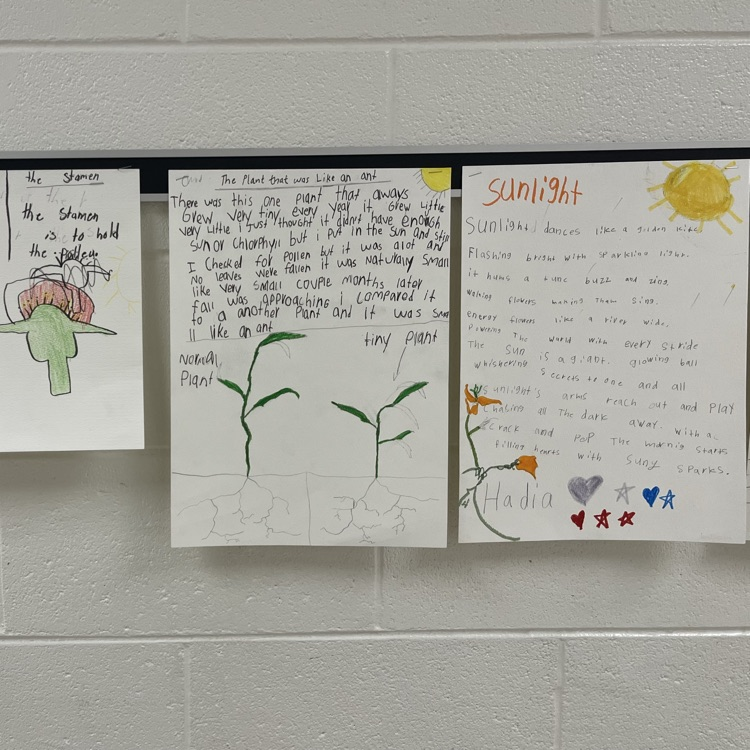 the Stamen
the Stamen
is to hold
the
The Plant that was Like an ant
There was this one plant that aways
Grew very tiny every year it Grew Little
very Little i Just thought it didn't have enough
sun or Chlorphyll but i put in the sun and still
I Checked for pollen but it was alot and
No leaves were fallen it was naturally small
like very small couple months later
fall was approaching i compared it
to a another plant and it was sma
ll like an ant
Normal
Plant
tiny plant
Sunlight
Sunlight dances like a golden kite
Flashing bright with sparkling light.
it hums a tune buzz and zing,
Waking flowers making them sing.
energy flowers like a river wide,
Powering The world with every stride
The Sun is a giant, glowing ball
whispering Secrets to one and all
Sunlight's arms reach out and play
Chasing all The dark away. With a
crack and pop The mornig starts
filling hearts with suny sparks.
Hadia